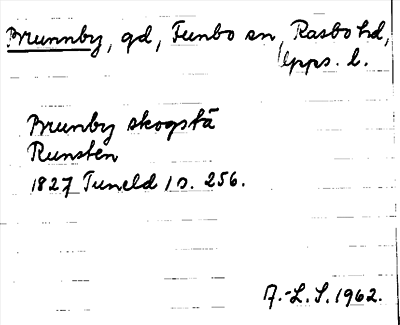 Brunnby, gd, Funbo sn, Rasbo hd,
Upps. l.
Brunby skogstå
Runsten
1827 Tuneld 1 s. 256.
A.-L. S. 1962.